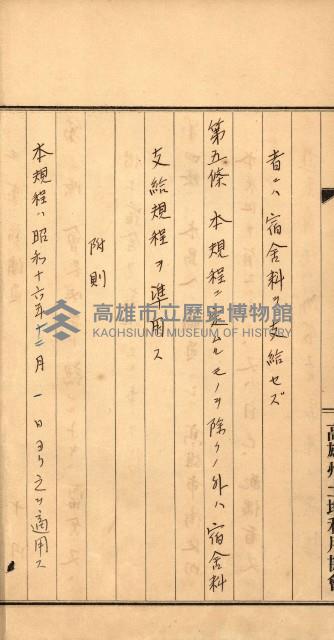 者ニハ宿舍料ヲ支給セズ
第五條 本規程ニ定ムルモノヲ除クノ外ハ宿舍料
支給規程ヲ準用ス
附則
本規程ハ昭和十六年十二月一日ヨリ之ヲ適用ス
高雄州土地利用協會
高雄市立歷史博物館
KAOHSIUNG MUSEUM OF HISTORY